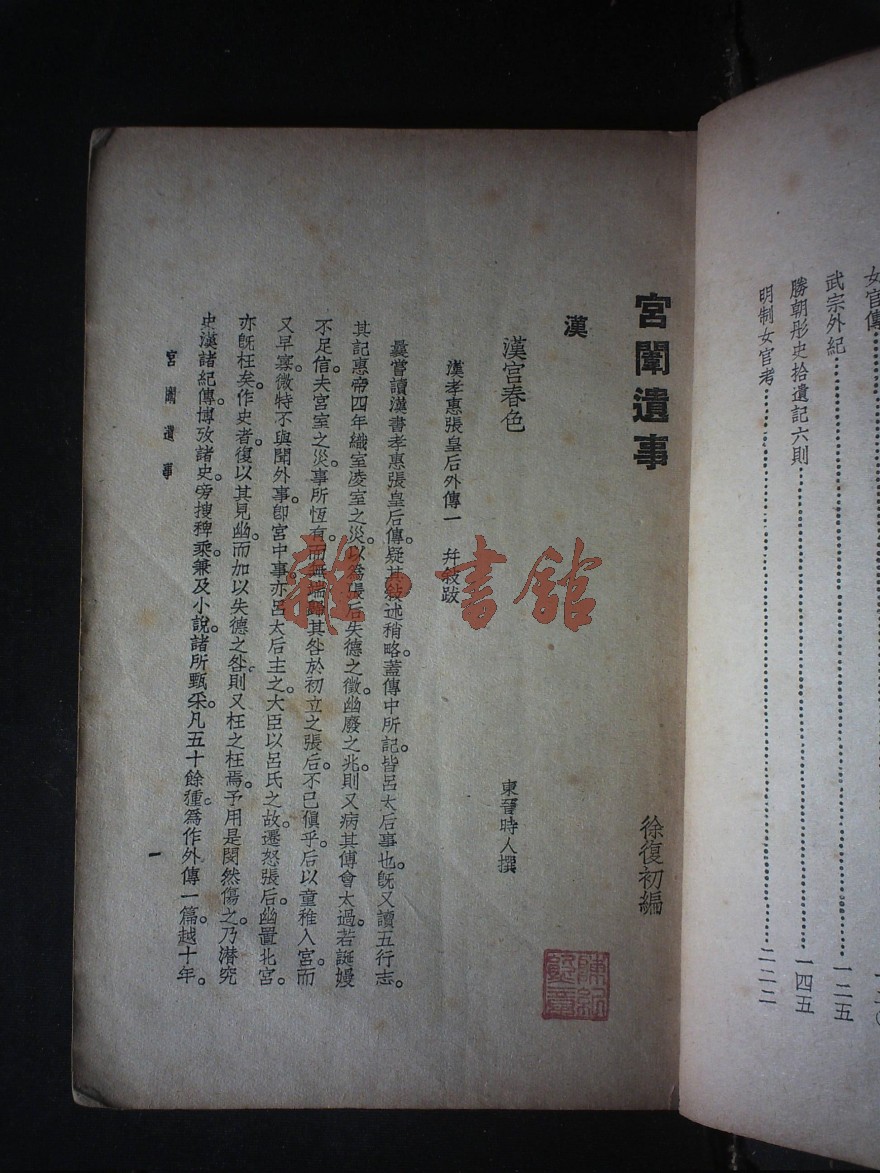 女官傳
武宗外紀⋯⋯⋯⋯⋯⋯⋯⋯⋯⋯一二五
勝朝彤史拾遺記六則⋯⋯⋯⋯⋯⋯⋯⋯⋯⋯一四五
明制女官考⋯⋯⋯⋯⋯⋯⋯⋯⋯⋯二二二
宮闈遺事
徐復初編
漢
漢宮春色
東晉時人撰
漢孝惠張皇后外傳一 幷敍跋
曩嘗讀漢書孝惠張皇后傳。疑其敍述稍略。蓋傳中所記。皆呂太后事也。旣又讀五行志。
其記惠帝四年織室凌室之災。以爲張后失德之徵。幽廢之兆。則又病其傳會太過。若誕嫚
不足信。夫宮室之災。事所恆有。而無端歸其咎於初立之張后。不已傎乎。后以童稚入宮。而
又早寡。微特不與聞外事。卽宮中事亦呂太后主之。大臣以呂氏之故。遷怒張后。幽置北宮。
亦旣枉矣。作史者。復以其見幽。而加以失德之咎。則又枉之枉焉。予用是閔然傷之。乃潛究
史漢諸紀傳。博攷諸史。旁搜稗乘。兼及小說。諸所甄采。凡五十餘種。爲作外傳一篇。越十年。
宮闈遺事
一
雜·書館